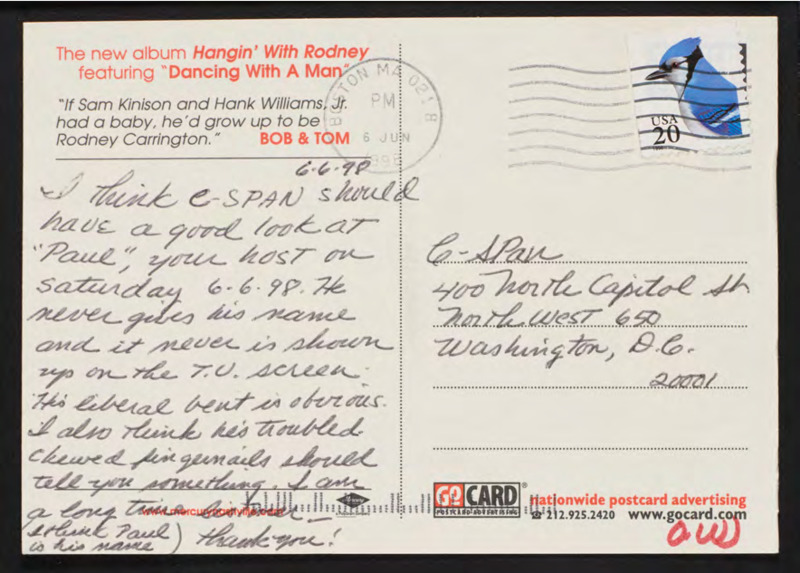 The new album Hangin' With Rodney
featuring "Dancing With A Man"
"If Sam Kinison and Hank Williams, Jr.
had a baby, he'd grow up to be
Rodney Carrington." BOB & TOM
BOSTON MA 021
PM
6 JUN
1998
USA
20
6-6-98
I think C-SPAN should
have a good look at
"Paul", your host on
Saturday 6-6-98. He
never gives his name
and it never is shown
up on the T.V. screen.
His liberal bent is obvious.
I also think his troubled
chewed fingernails should
tell you something. I am
a long time
I think Paul
is his name) Thank you!
C-SPan
400 North Capitol St.
North West 650
Washington, D.C.
20001
GO CARD
POSTCARD ADVERTISING
nationwide postcard advertising
☎ 212.925.2420 www.gocard.com